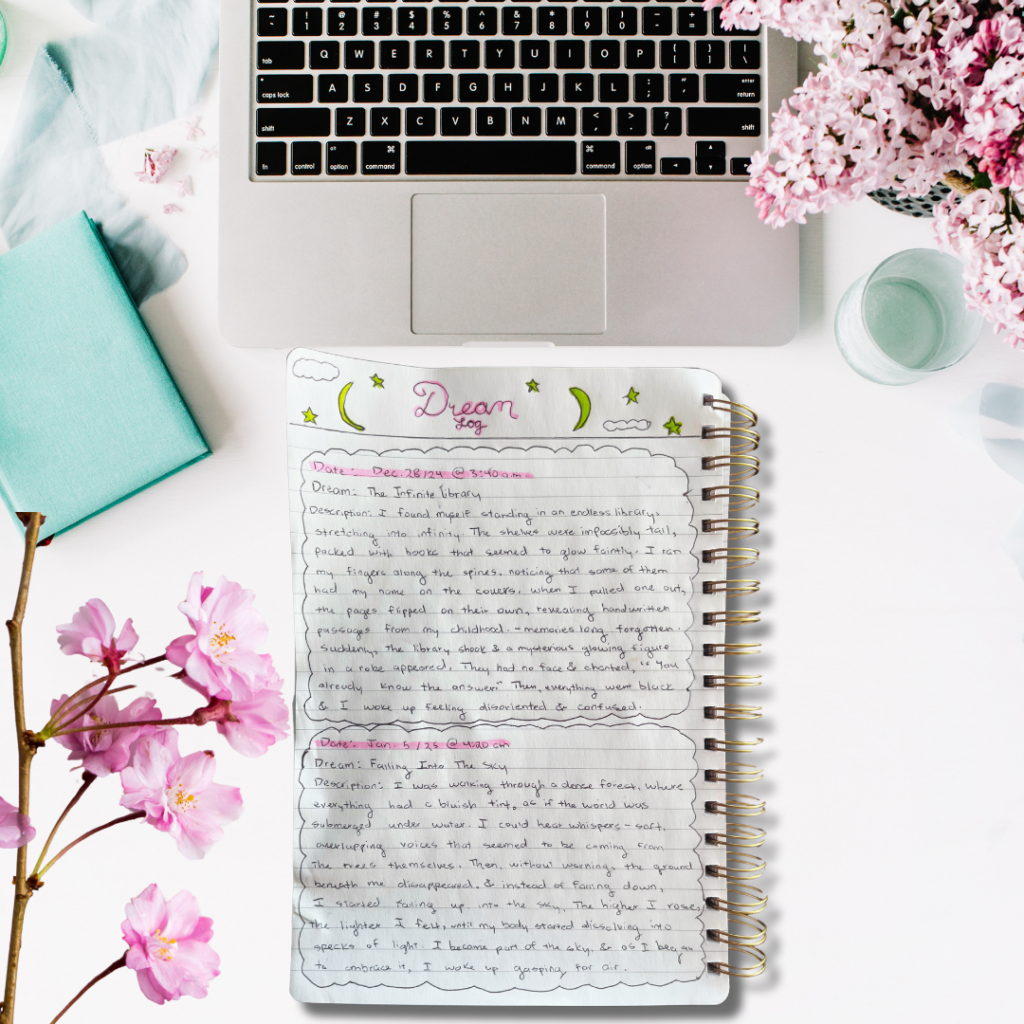 ~ ! @ # $ % ^ & * ( ) _ +
` 1 2 3 4 5 6 7 8 9 0 - =
tab Q W E R T Y U I O P { [ } ] | \
caps lock A S D F G H J K L : ; " ' enter return
shift Z X C V B N M < , > . ? / shift
fn control alt option ⌘ command ⌘ command alt option ◄ ▲ ▼ ►
Dream
Log
Date: Dec. 28/24 @ 3:40 a.m
Dream: The Infinite library
Description: I found myself standing in an endless library,
stretching into infinity. The shelves were impossibly tall,
packed with books that seemed to glow faintly. I ran
my fingers along the spines, noticing that some of them
had my name on the covers. When I pulled one out,
the pages flipped on their own, revealing handwritten
passages from my childhood - memories long forgotten
suddenly, the library shook & a mysterious glowing figure
in a robe appeared. They had no face & chanted, "You
already know the answer." Then, everything went black
& I woke up feeling disoriented & confused.
Date: Jan. 5/25 @ 4:20 am
Dream: Falling Into The Sky
Description: I was walking through a dense forest, where
everything had a bluish tint, as if the world was
submerged under water. I could hear whispers - soft,
overlapping voices that seemed to be coming from
the trees themselves. Then, without warning, the ground
beneath me disappeared, & instead of falling down,
I started falling up into the sky. The higher I rose,
the lighter I felt, until my body started dissolving into
specks of light. I became part of the sky, & as I began
to embrace it, I woke up gasping for air.